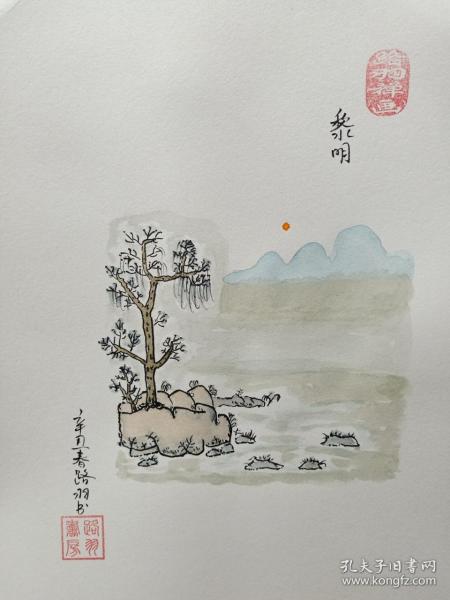 黎明
辛丑春路羽书
路羽
书房
孔夫子旧书网
www.kongfz.com